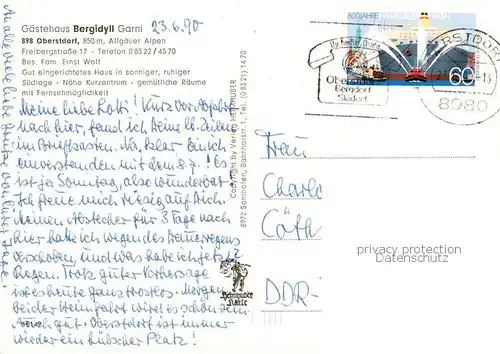 Gästehaus Bergidyll Garni
23.6.90
898 Oberstdorf, 850 m, Allgäuer Alpen
Freibergstraße 17 - Telefon 0 83 22 / 45 70
Bes. Fam. Ernst Wolf
Gut eingerichtetes Haus in sonniger, ruhiger
Südlage - Nähe Kurzentrum - gemütliche Räume
mit Fernsehmöglichkeit
Meine liebe Lotti! Kurz vor Abfahrt
nach hier, fand ich Deine lb. Zeilen
im Briefkasten. Na, klar bin ich
einverstanden mit dem 8.7.! Es
ist ja Sonntag, also wunderbar!
Ich freue mich riesig auf Dich.
Meinen Abstecher für 3 Tage nach
hier hatte ich wegen des Dauerregens
verschoben, und was habe ich jetzt?
Regen. Trotz guter Vorhersage
ist es heute ganz trostlos. Morgen
bei der Heimfahrt wird es schön sein.
Auch gut. Oberstdorf ist immer
wieder ein hübscher Platz!
An alle viele liebe Grüße von
Copyright by Verlag HEIMHUBER
8972 Sonthofen, Bahnhofstr. 1, Tel. (0 83 21) 14 70
Heimhuber
Karte
800 JAHRE
HAFEN HAMBURG
60
Oberstdorf
Bergdorf
Skidorf
8980
Frau
Charl.
DDR-
propriété protection
Datenschutz